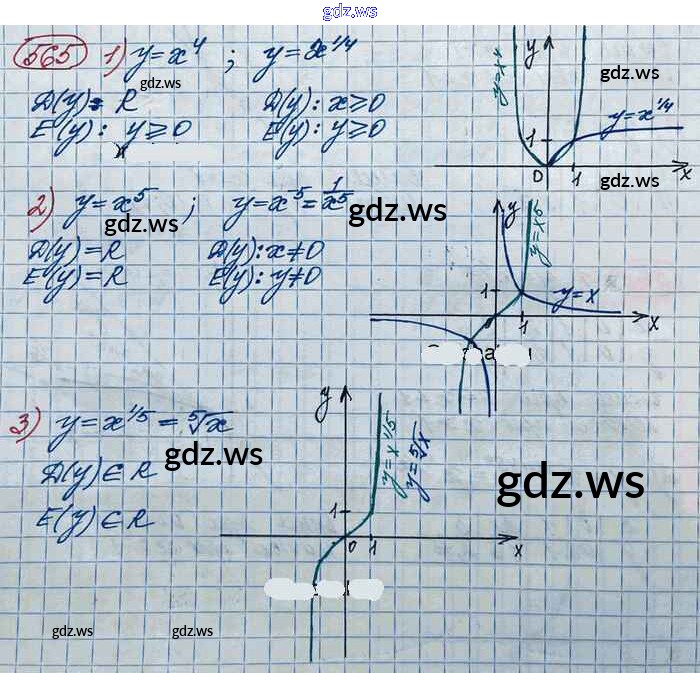 gdz.ws
565 1) y=x⁴ ; y=x^1/4
D(y)= R D(y): x≥0
E(y): y≥0 E(y): y≥0
gdz.ws
y=x⁴ y
gdz.ws
y=x^1/4
1
0 1 x
2) y=x⁵ ; y=x⁻⁵=1/x⁵
gdz.ws
gdz.ws
gdz.ws
D(y)=R D(y): x≠0
E(y)=R E(y): y≠0
y y=x5
1 y=x
1 x
3) y=x^1/5 = ⁵√x
gdz.ws
D(y)∈R
E(y)∈R
y
y=x^1/5
y=⁵√x
1
0 1 x
gdz.ws
gdz.ws
gdz.ws